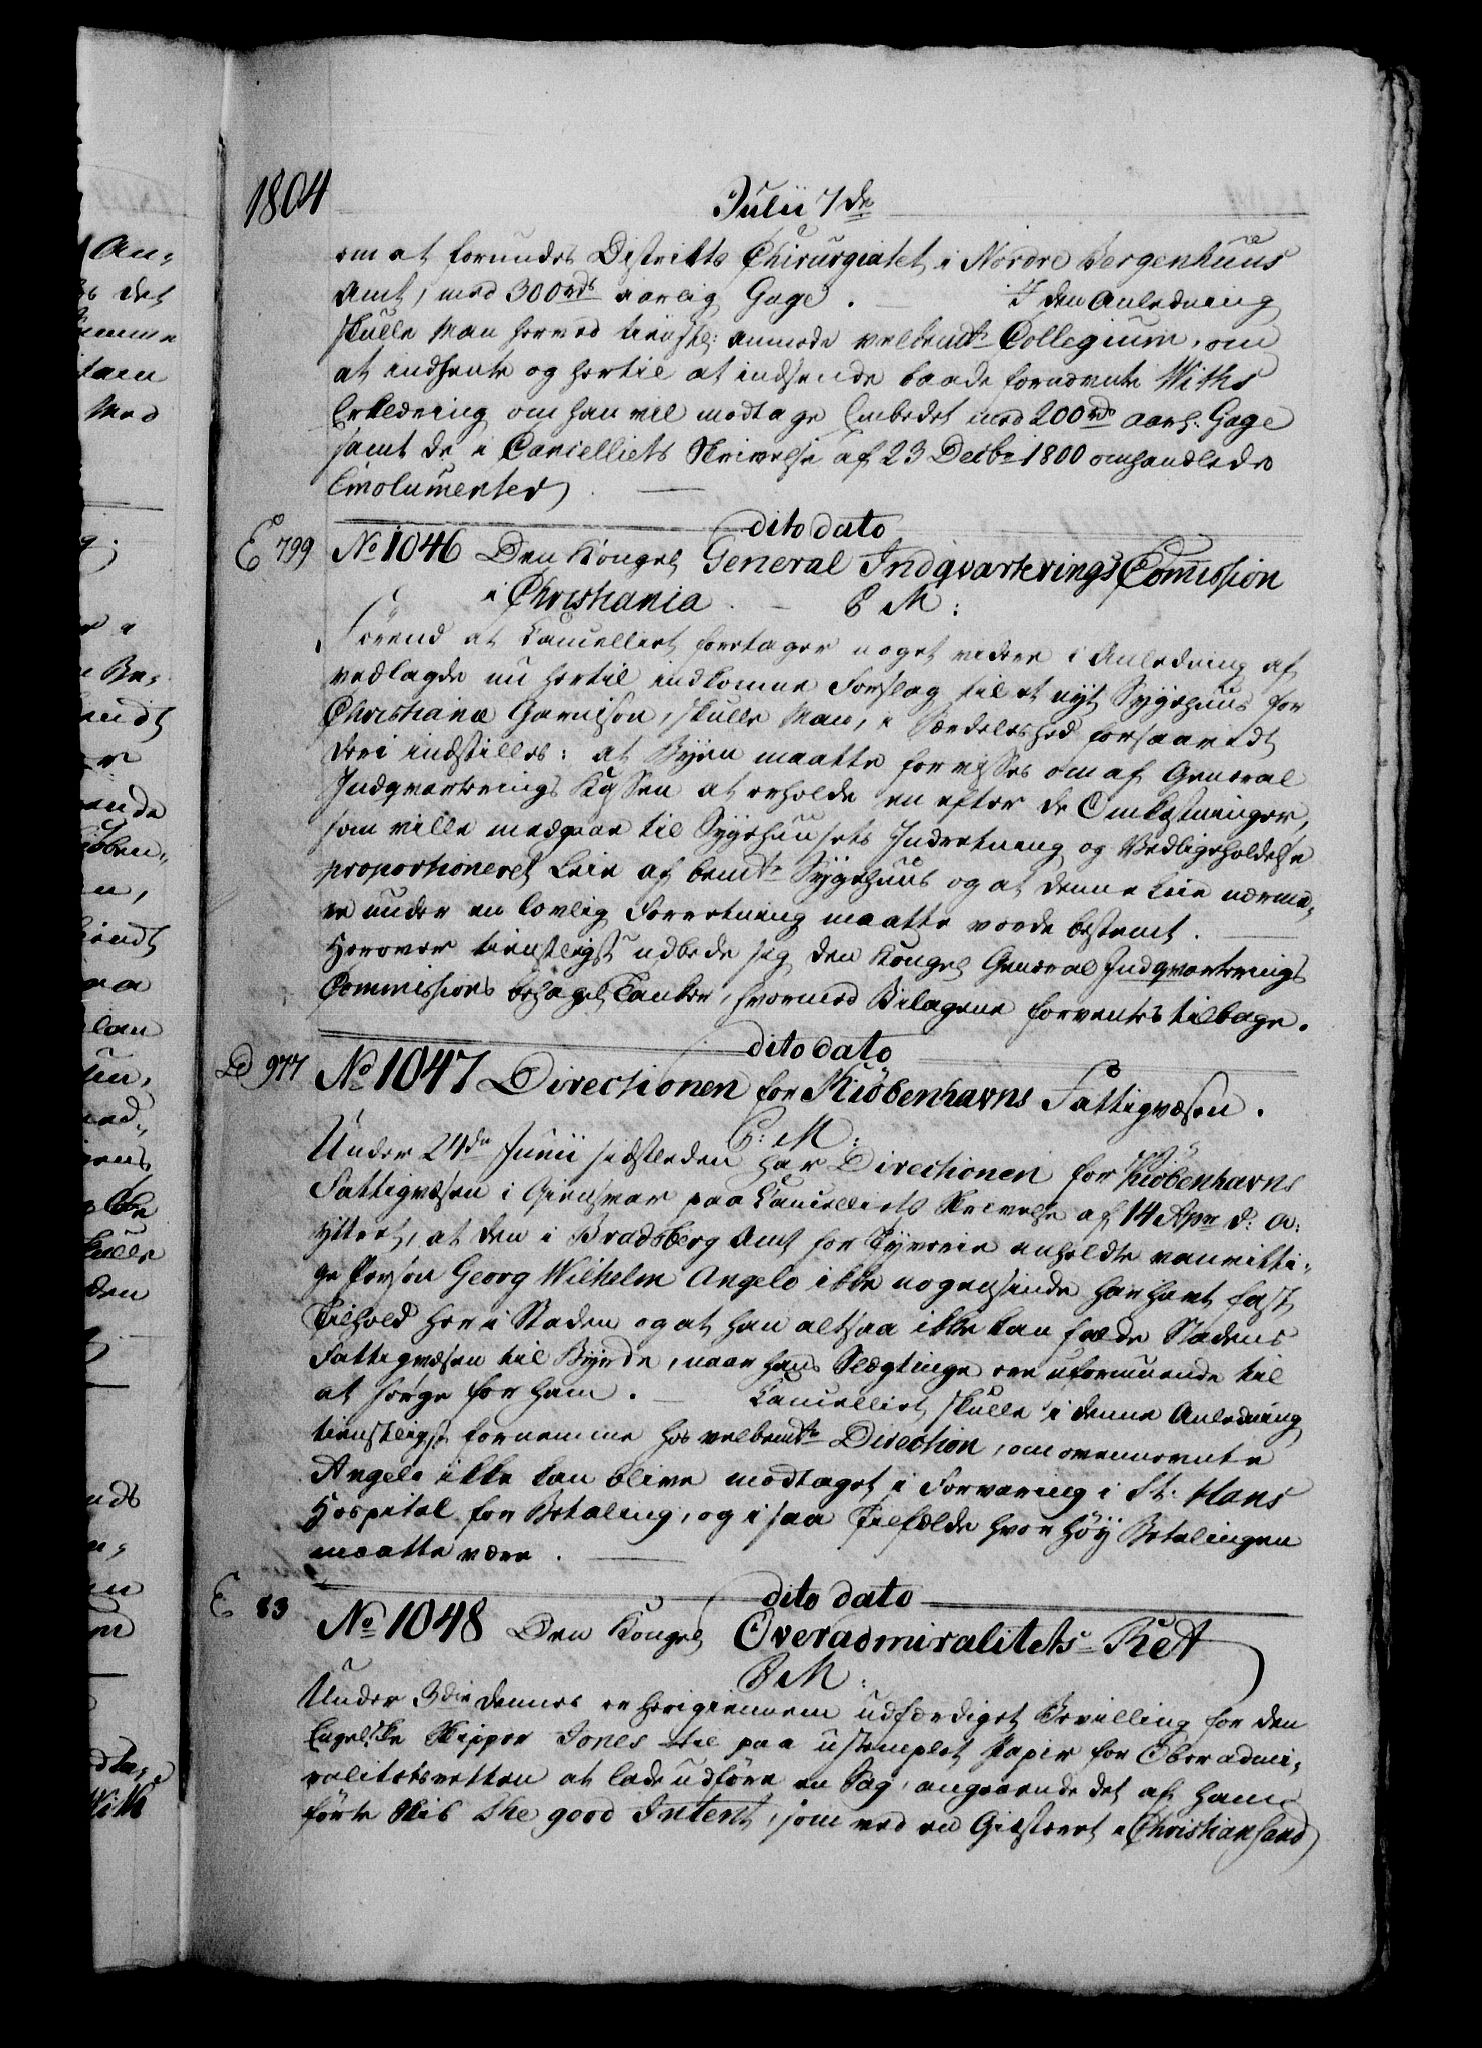 An-
det
Med
1804
Julii 7de
om at forundes Districts Chirurgiatet i Nordre Bergenhuus
Amt, med 300 rds aarlig Gage. I den Anledning
skulle Man herved tienstl: anmode velbemte Collegium, om
at indhente og hertil at indsende baade fornævnte Withs
Erklæring om han vil modtage Embedet med 200 rds aarl. Gage
samt de i Cancelliets Skrivelse af 23 Decbr 1800 omhandlede
Emolumenter.
dito dato
E 799 No 1046 Den Kongel General Indqvarterings Comission
i Christiania. P M:
Førend at Cancelliet foretager noget videre i Anledning af
vedlagde nu hertil indkomne Forslag til et nyt Sygehuus for
Christianiæ Garnison, skulle Man, i Særdeleshed forsaavidt
deri indstilles: at Byen maatte forvisses om af General
Indqvarterings Kassen at erholde en efter de Omkostninger,
som ville medgaae til Sygehusets Indretning og Vedligeholdelse
proportioneret Leie af bemte Sygehuus og at denne Leie nærme-
re under en lovlig Forretning maatte vorde bestemt.
Herover tienstligst udbede sig den Kongel General Indqvarterings
Commissions behagel Tanker, hvormed Bilagene forventes tilbage.
dito dato
D 977 No 1047 Directionen for Kiøbenhavns Fattigvæsen.
P: M:
Under 24de Junii sidstleden har Directionen for Kiøbenhavns
Fattigvæsen i Giensvar paa Cancelliets Skrivelse af 14 Apr d: A:
yttret, at den i Bradsberg Amt for Tyverie anholdte vanvitti-
ge Person Georg Wilhelm Angelo ikke nogensinde har havt fast
Tilhold her i Staden og at han altsaa ikke kan falde Stadens
Fattigvæsen til Byrde, naar hans Slægtinge ere uformuende til
at sørge for ham. Cancelliet skulle i denne Anledning
tienstligst fornemme hos velbemte Direction, om ovennævnte
Angelo ikke kan blive modtaget i Forvaring i St. Hans
Hospital for Betaling, og i saa Tilfælde hvor høy Betalingen
maatte være.
dito dato
E 83 No 1048 Den Kongel Overadmiralitets-Ret
P M:
Under 3die dennes er herigiennem udfærdiget Bevilling for den
Engelske Skipper Jones til paa ustemplet Papir for Overadmi-
ralitetsretten at lade udføre en Sag, angaaende det af ham
førte Skib the good Intent, som ved en Giesteret i Christiansand